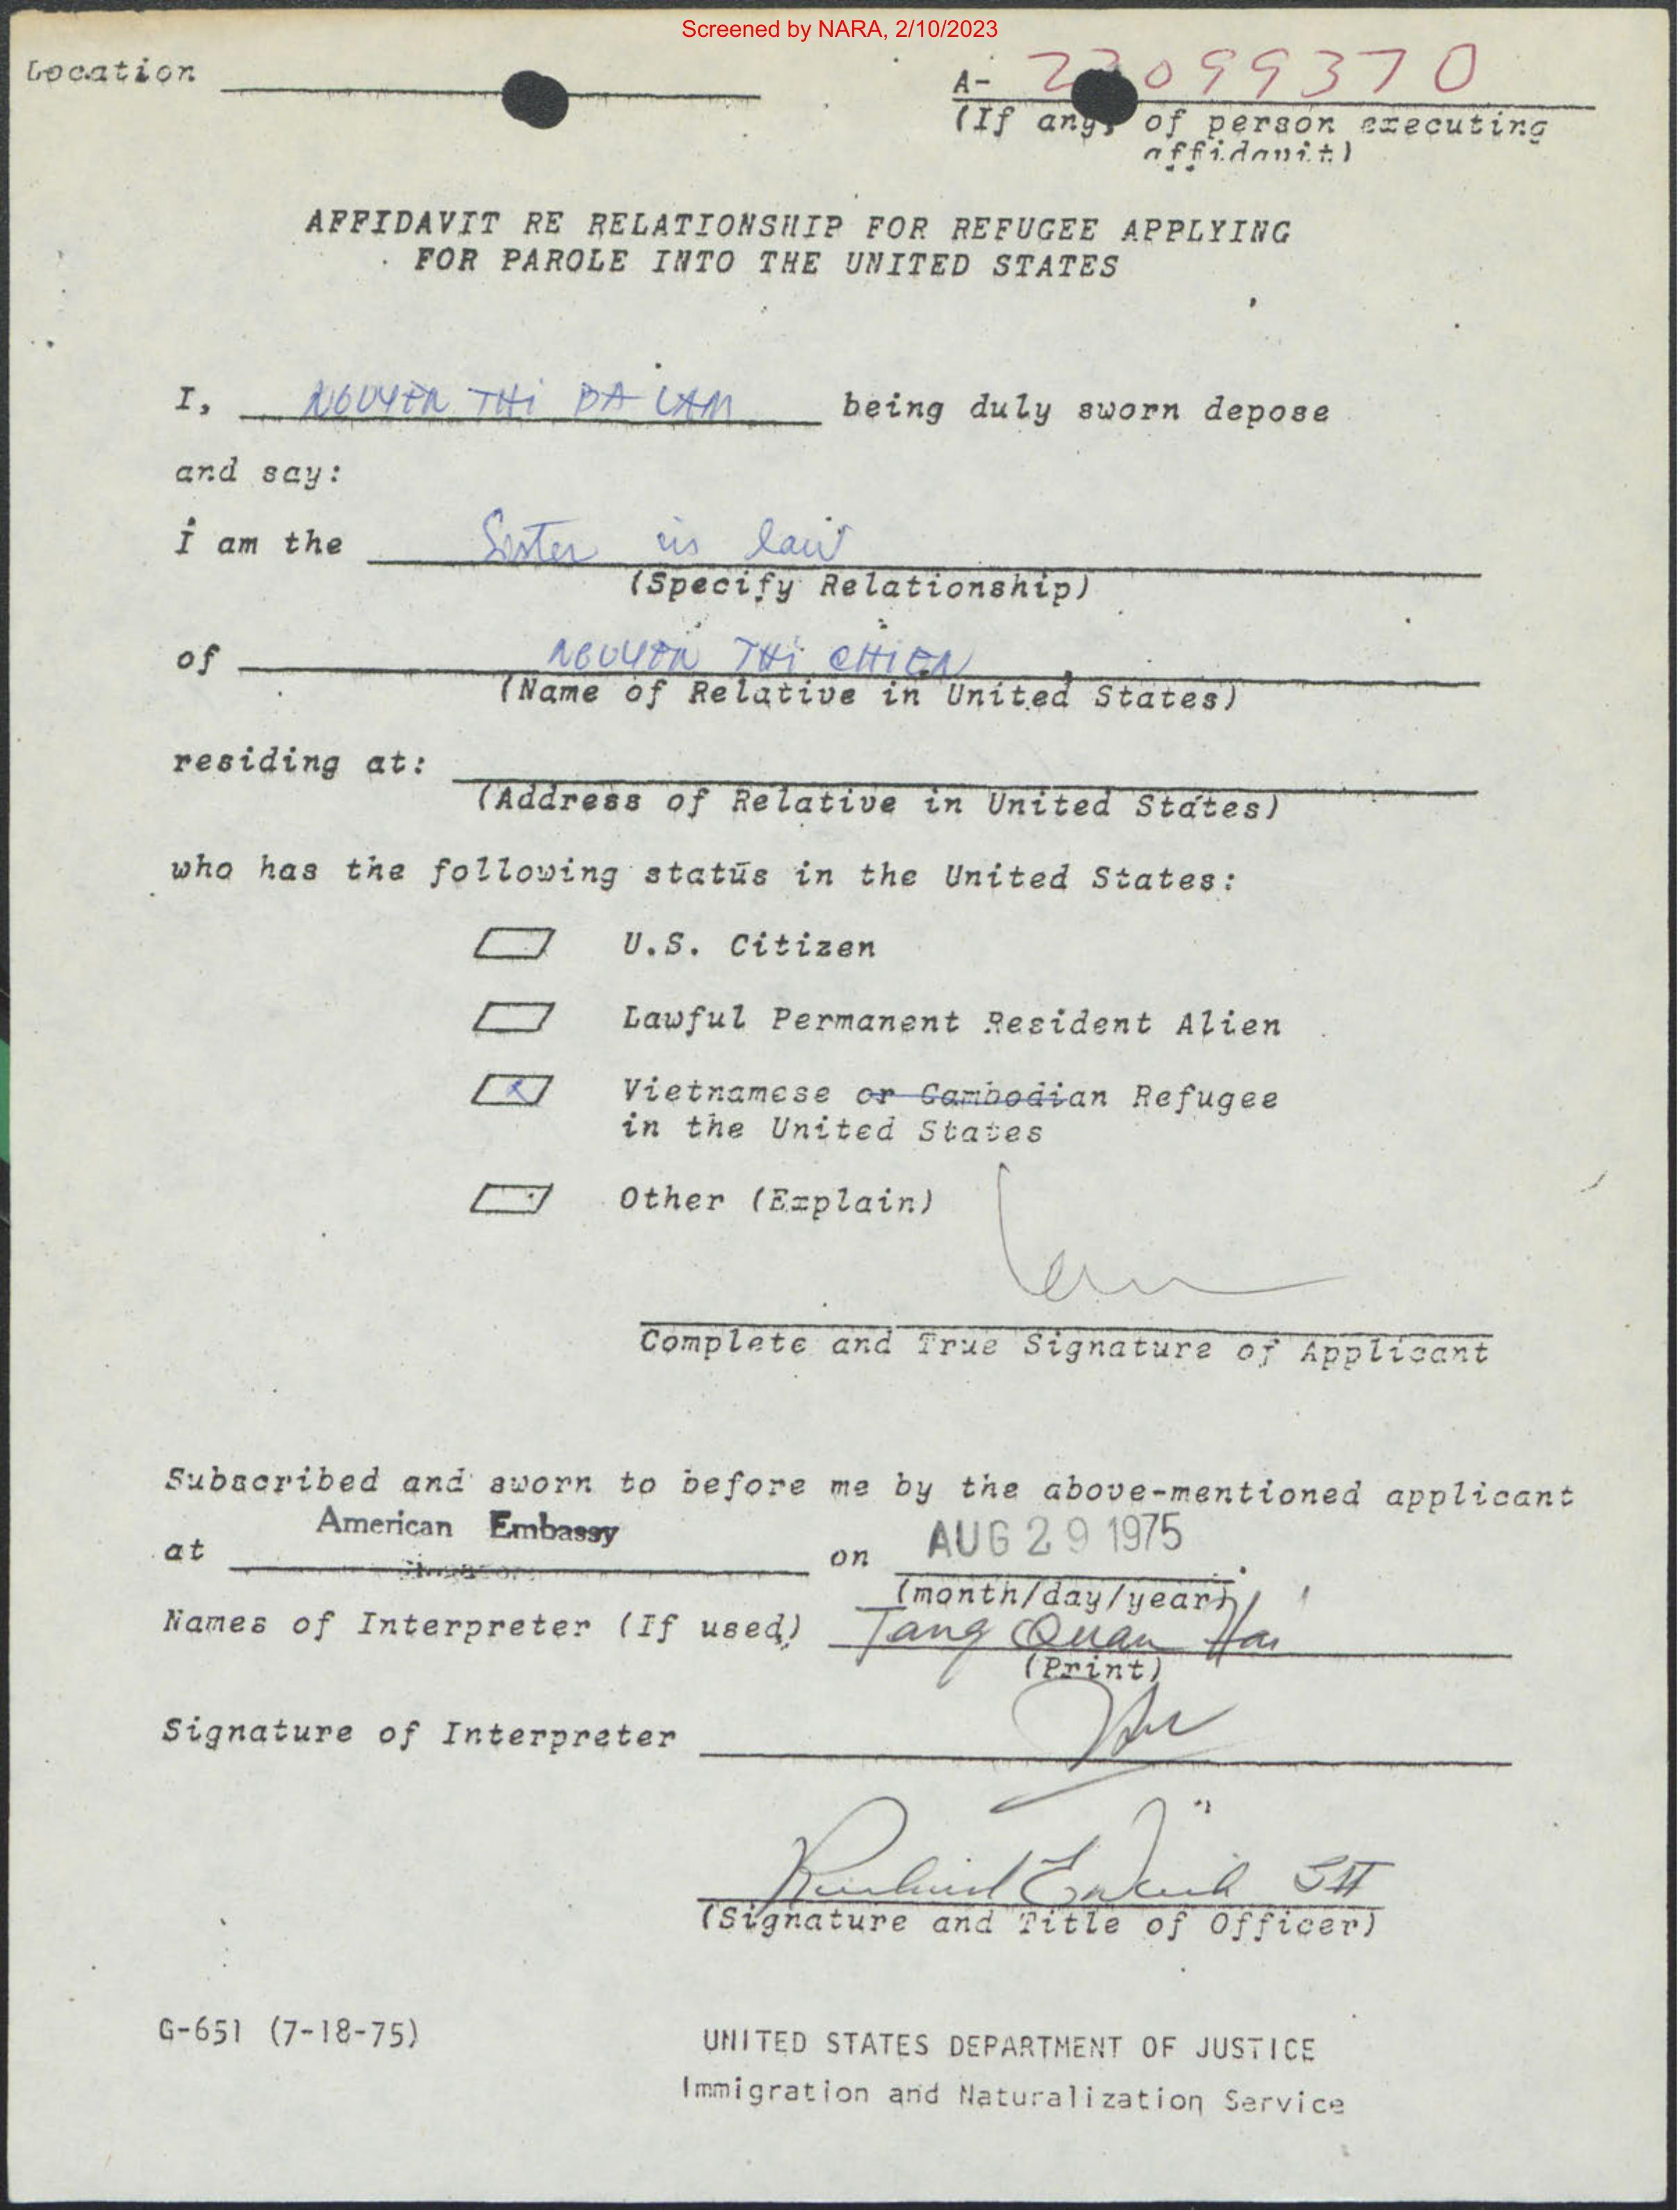 Screened by NARA, 2/10/2023
Location
A- 23099370
(If any, of person executing
affidavit)
AFFIDAVIT RE RELATIONSHIP FOR REFUGEE APPLYING
FOR PAROLE INTO THE UNITED STATES
I, NGUYEN THI BA LAM being duly sworn depose
and say:
I am the Sister in law
(Specify Relationship)
of NGUYEN THI CHIEN
(Name of Relative in United States)
residing at:
(Address of Relative in United States)
who has the following status in the United States:
U.S. Citizen
Lawful Permanent Resident Alien
x Vietnamese or Cambodian Refugee
in the United States
Other (Explain)
Lam
Complete and True Signature of Applicant
Subscribed and sworn to before me by the above-mentioned applicant
American Embassy
at on AUG 29 1975
(month/day/year)
Names of Interpreter (If used) Tang Quan Hai
(Print)
Signature of Interpreter
Richard
(Signature and Title of Officer)
G-651 (7-18-75)
UNITED STATES DEPARTMENT OF JUSTICE
Immigration and Naturalization Service